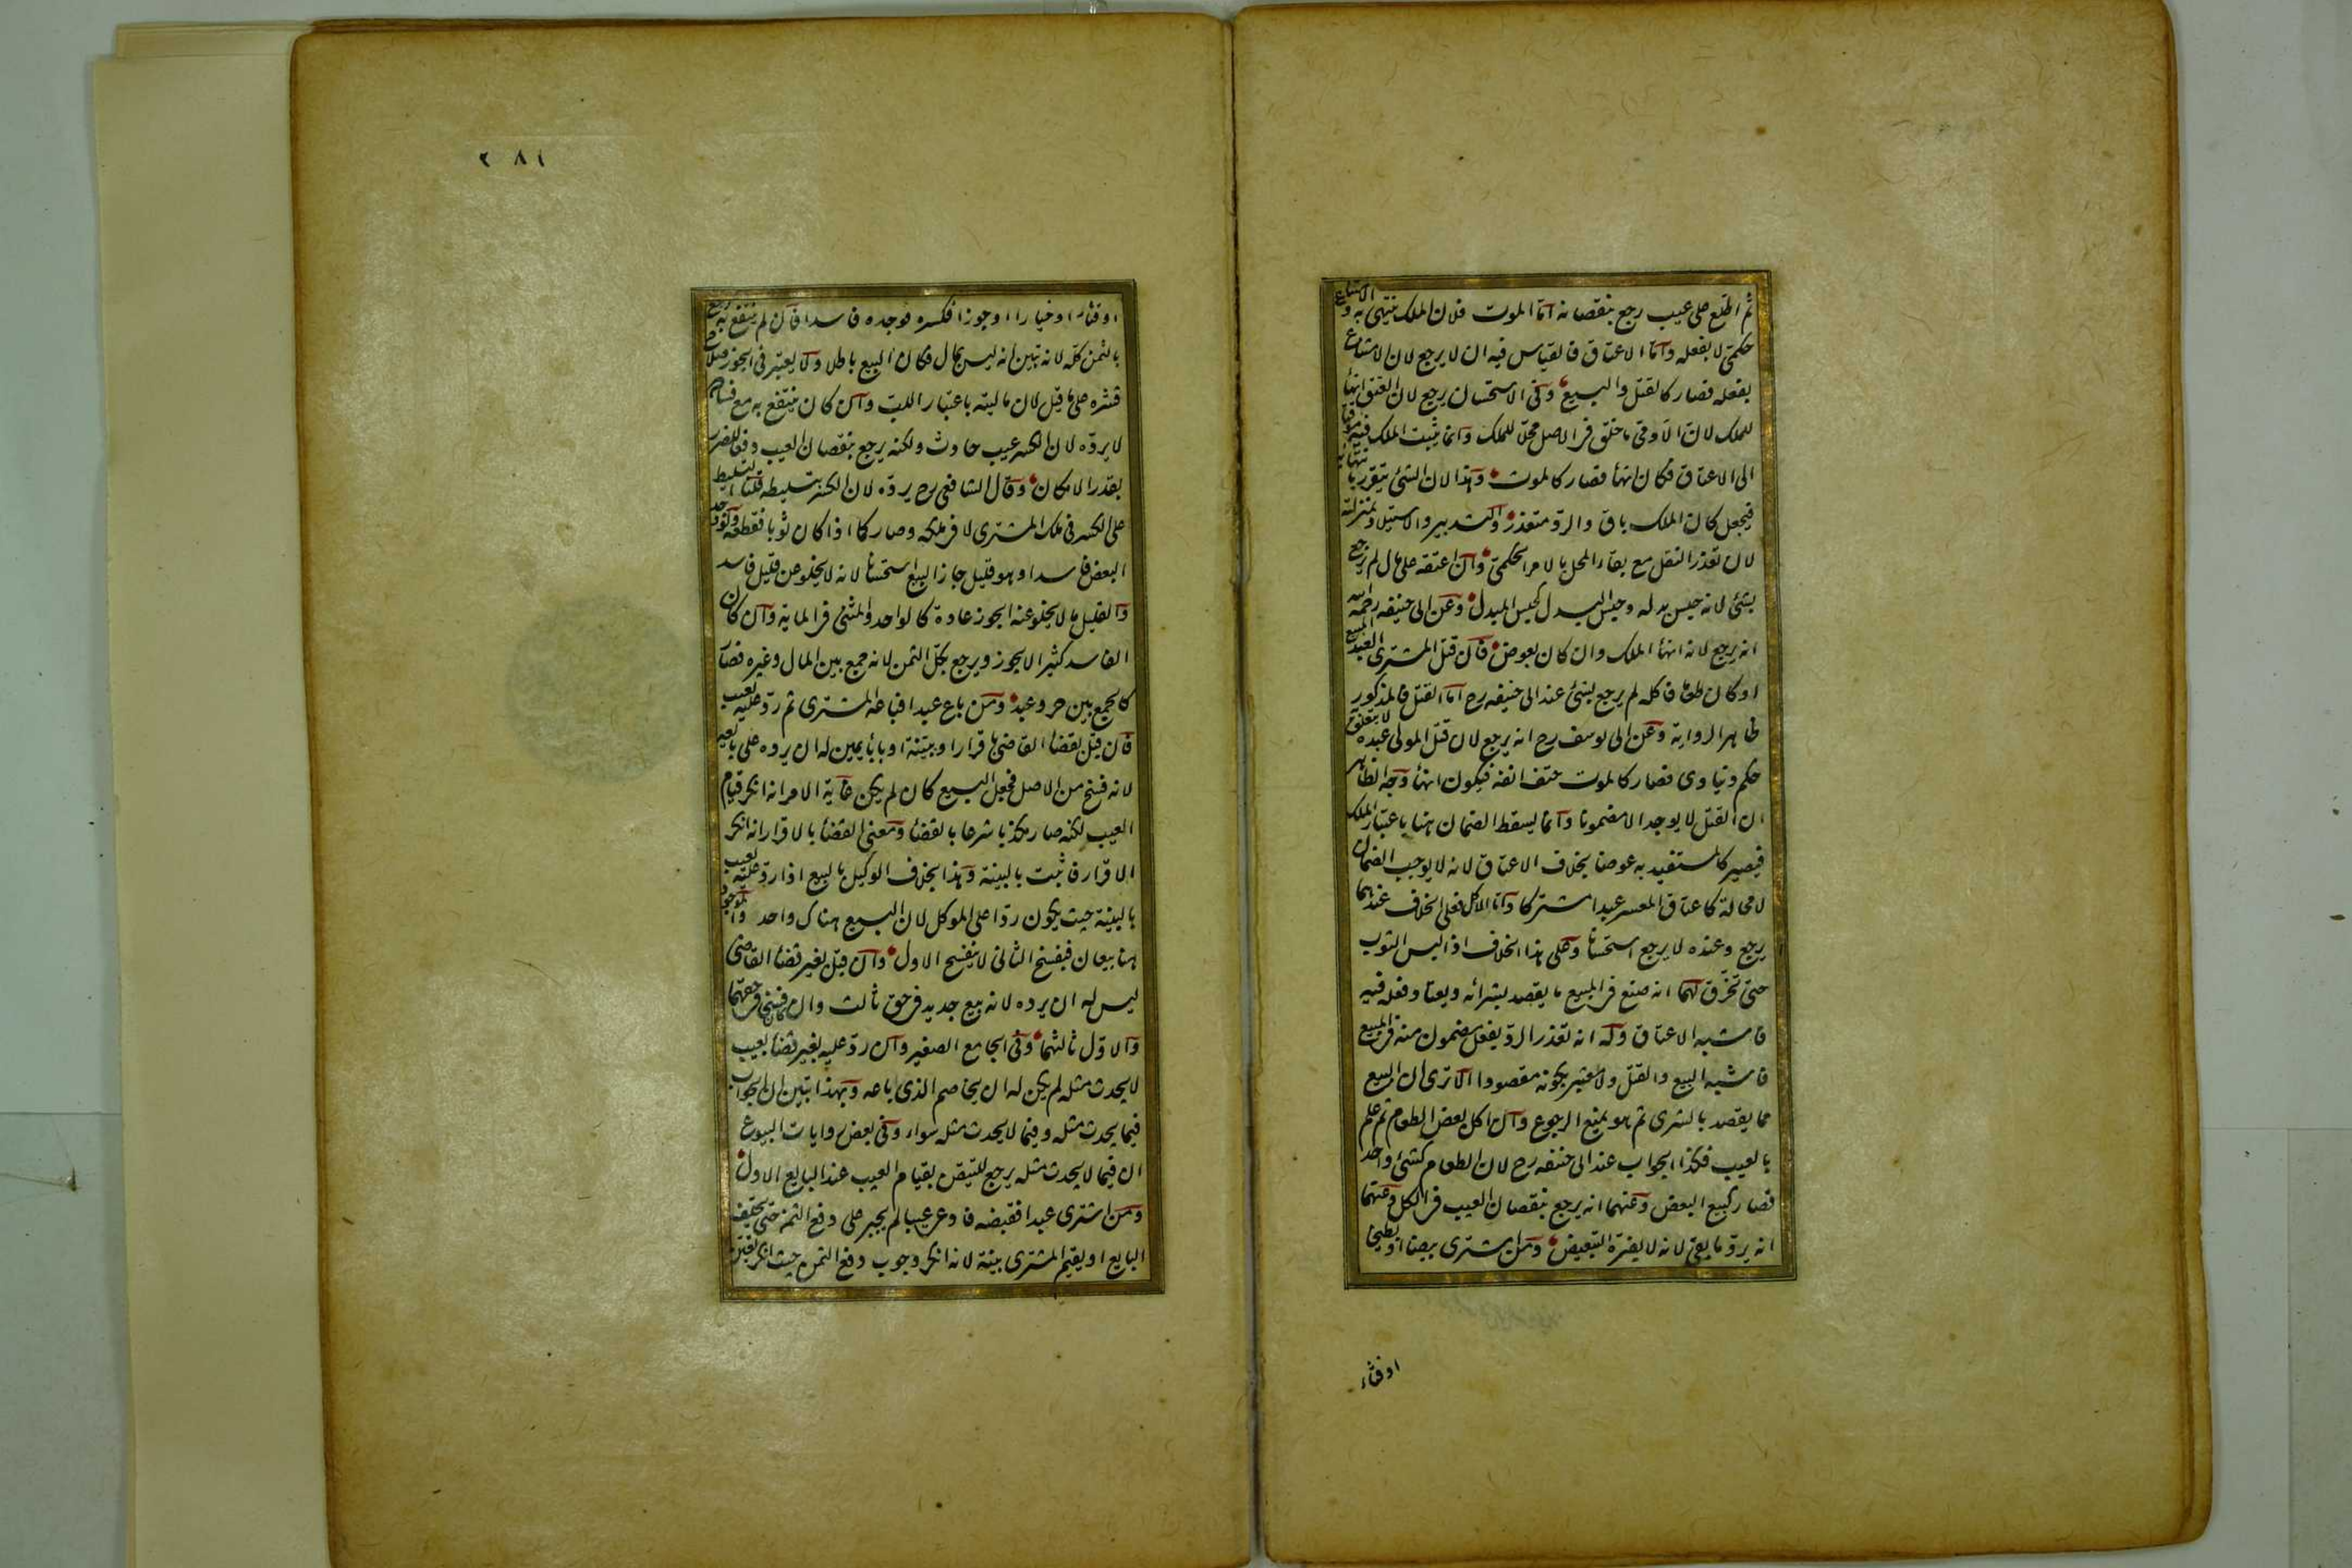 ثم اطلع على عيب رجع بنقصانه اما الموت فلان الملك ينتهى به والامتناع
حكمى لا بفعله واما الاعتاق فالقياس فيه ان لا يرجع لان الامتناع
بفعله فصار كالقتل والبيع وفى الاستحسان يرجع لان العتق انهاء
للملك لان الآدمى ما خلق فى الاصل محلا للملك وانما يثبت الملك فيه موقتا
الى الاعتاق فكان انهاء فصار كالموت وهذا لان الشئ يتقرر بانتهائه
فيجعل كان الملك باق والرد متعذر والتدبير والاستيلاد بمنزلته
لان تعذر النقل مع بقاء المحل بالامر الحكمى وان اعتقه على مال لم يرجع
بشئ لانه حبس بدله وحبس البدل كحبس المبدل وعن ابى حنيفه رحمه الله
انه يرجع لانه انهاء الملك وان كان بعوض فان قتل المشترى العبد المبيع
او كان طعاما فاكله لم يرجع بشئ عند ابى حنيفه رح اما القتل فالمذكور
ظاهر الرواية وعن ابى يوسف رح انه يرجع لان قتل المولى عبده لا يتعلق
حكم دنياوى فصار كالموت حتف انفه فيكون انهاء وجه الظاهر
ان القتل لا يوجد الا مضمونا وانما يسقط الضمان هنا باعتبار الملك
فيصير كالمستفيد به عوضا بخلاف الاعتاق لانه لا يوجب الضمان
لا محالة كاعتاق المعسر عبدا مشتركا واما الاكل فعلى الخلاف عندهما
يرجع وعنده لا يرجع استحسانا وعلى هذا الخلاف اذا لبس الثوب
حتى تخرق لهما انه صنع فى المبيع ما يقصد بشرائه ويعتاد فعله فيه
فاشبه الاعتاق وله انه تعذر الرد بفعل مضمون منه فى المبيع
فاشبه البيع والقتل ولا معتبر بكونه مقصودا الا ترى ان البيع
مما يقصد بالشرى ثم هو يمنع الرجوع وان اكل بعض الطعام ثم علم
بالعيب فكذا الجواب عند ابى حنيفه رح لان الطعام كشئ واحد
فصار كبيع البعض وعنهما انه يرجع بنقصان العيب فى الكل وعنهما
انه يرد ما بقى لانه لا يضره التبعيض ومن اشترى بيضا او بطيخا
اوقثاء
٢٨١
او قثاء او خيارا او جوزا فكسره فوجده فاسدا فان لم ينتفع به رجع
بالثمن كله لانه تبين انه ليس بمال فكان البيع باطلا ولا يعتبر فى الجوز صلاح
قشره على ما قيل لان ماليته باعتبار اللب وان كان ينتفع به مع فساده
لا يرده لان الكسر عيب حادث ولكنه يرجع بنقصان العيب دفعا للضرر
بقدر الامكان وقال الشافعى رح يرده لان الكسر بتسليطه قلنا التسليط
على الكسر فى ملك المشترى لا فى ملكه وصار كما اذا كان ثوبا فقطعه ولو وجد
البعض فاسدا وهو قليل جاز البيع استحسانا لانه لا يخلو عن قليل فاسد
والقليل ما لا يخلو عنه الجوز عادة كالواحد والمثنى فى الماية وان كان
الفاسد كثيرا لا يجوز ويرجع بكل الثمن لانه جمع بين المال وغيره فصار
كالجمع بين حر وعبد ومن باع عبدا فباعه المشترى ثم رد عليه بعيب
فان قبل بقضاء القاضى باقرار او ببينة او باباء يمين له ان يرده على بايعه
لانه فسخ من الاصل فجعل البيع كان لم يكن غاية الامر انه انكر قيام
العيب لكنه صار مكذبا شرعا بالقضاء ومعنى القضاء بالاقرار انه انكر
الاقرار فاثبت بالبينة وهذا بخلاف الوكيل بالبيع اذا رد عليه بعيب
بالبينة حيث يكون ردا على الموكل لان البيع هناك واحد والموجود
هنا بيعان فيفسخ الثانى لا ينفسخ الاول وان قبل بغير قضاء القاضى
ليس له ان يرده لانه بيع جديد فى حق ثالث وان كان فسخا فى حقهما
والاول ثالثهما وفى الجامع الصغير وان رد عليه بغير قضاء بعيب
لا يحدث مثله لم يكن له ان يخاصم الذى باعه وبهذا تبين ان الجواب
فيما يحدث مثله وفيما لا يحدث مثله سواء وفى بعض روايات البيوع
ان فيما لا يحدث مثله يرجع للتيقن بقيام العيب عند البايع الاول
ومن اشترى عبدا فقبضه فادعى عيبا لم يجبر على دفع الثمن حتى يحلف
البايع او يقيم المشترى بينة لانه انكر وجوب دفع الثمن حيث انكر تعين